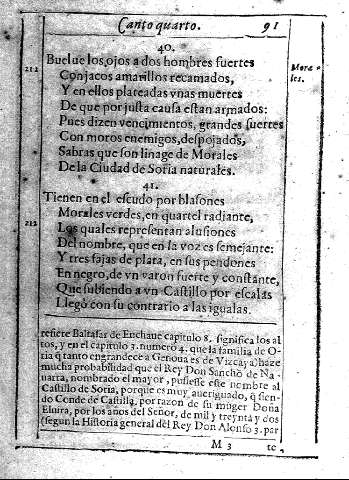 Canto quarto. 91
40.
Buelue los ojos a dos hombres fuertes
Mora-
les.
212
Con jacos amarillos recamados,
Y en ellos plateadas vnas muertes
De que por justa causa estan armados:
Pues dizen vencimientos, grandes suertes
Con moros enemigos, despojados,
Sabras que son linage de Morales
De la Ciudad de Soria naturales.
41.
Tienen en el escudo por blasones
Morales verdes, en quartel radiante,
212
Los quales representan alusiones
Del nombre, que en la voz es semejante:
Y tres fajas de plata, en sus pendones
En negro, de vn varon fuerte y constante,
Que subiendo a vn Castillo por escalas
Llegò con su contrario a las igualas.
refiere Baltasar de Enchaue capitulo 8. significa los al
tos, y en el capitulo 3. numero 4. que la familia de O-
ria q̃ tanto engrandece a Genoua es de Vizcaya) haze
mucha probabilidad que el Rey Don Sancho de Na-
uarra, nombrado el mayor, pusiesse este nombre al
Castillo de Soria, porque es muy aueriguado, q̃ sien-
do Conde de Castilla, por razon de su muger Doña
Eluira, por los años del Señor, de mil y treynta y dos
(segun la Historia general del Rey Don Alonso 3. par
M 3 te,